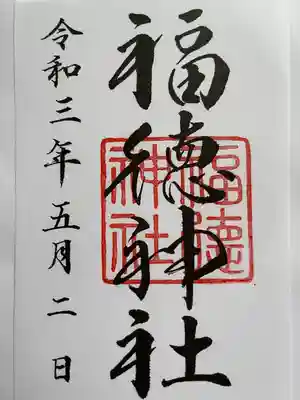 福徳神社
福徳
神社
令和三年五月二日